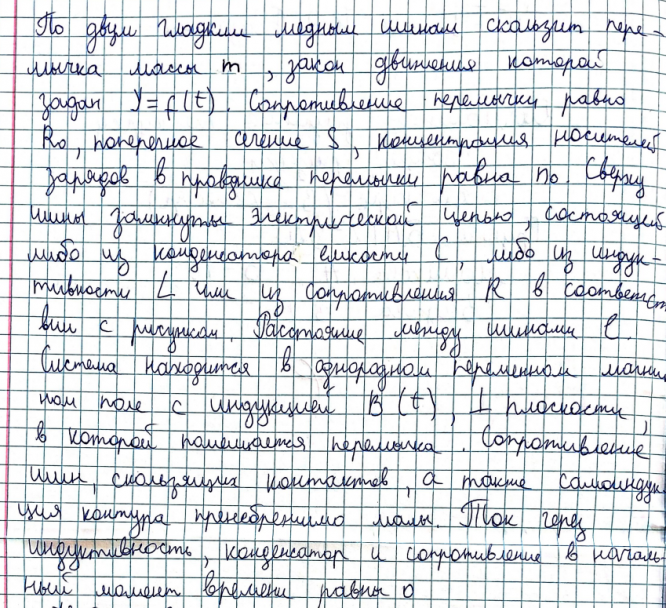 По двум гладким медным шинам скользит пере-
мычка массы m, закон движения которой
задан y=f(t). Сопротивление перемычки равно
R₀, поперечное сечение S, концентрация носителей
зарядов в проводнике перемычки равна n₀. Сверху
шины замкнуты электрической цепью, состоящей
либо из конденсатора емкости C, либо из индук-
тивности L или из сопротивления R в соответст
вии с рисунком. Расстояние между шинами l.
Система находится в однородном переменном магнит
ном поле с индукцией B(t), ⊥ плоскости,
в которой помещается перемычка. Сопротивление
шин, скользящих контактов, а также самоиндук
ция контура пренебрежимо малы. Ток через
индуктивность, конденсатор и сопротивление в началь-
ный момент времени равны 0